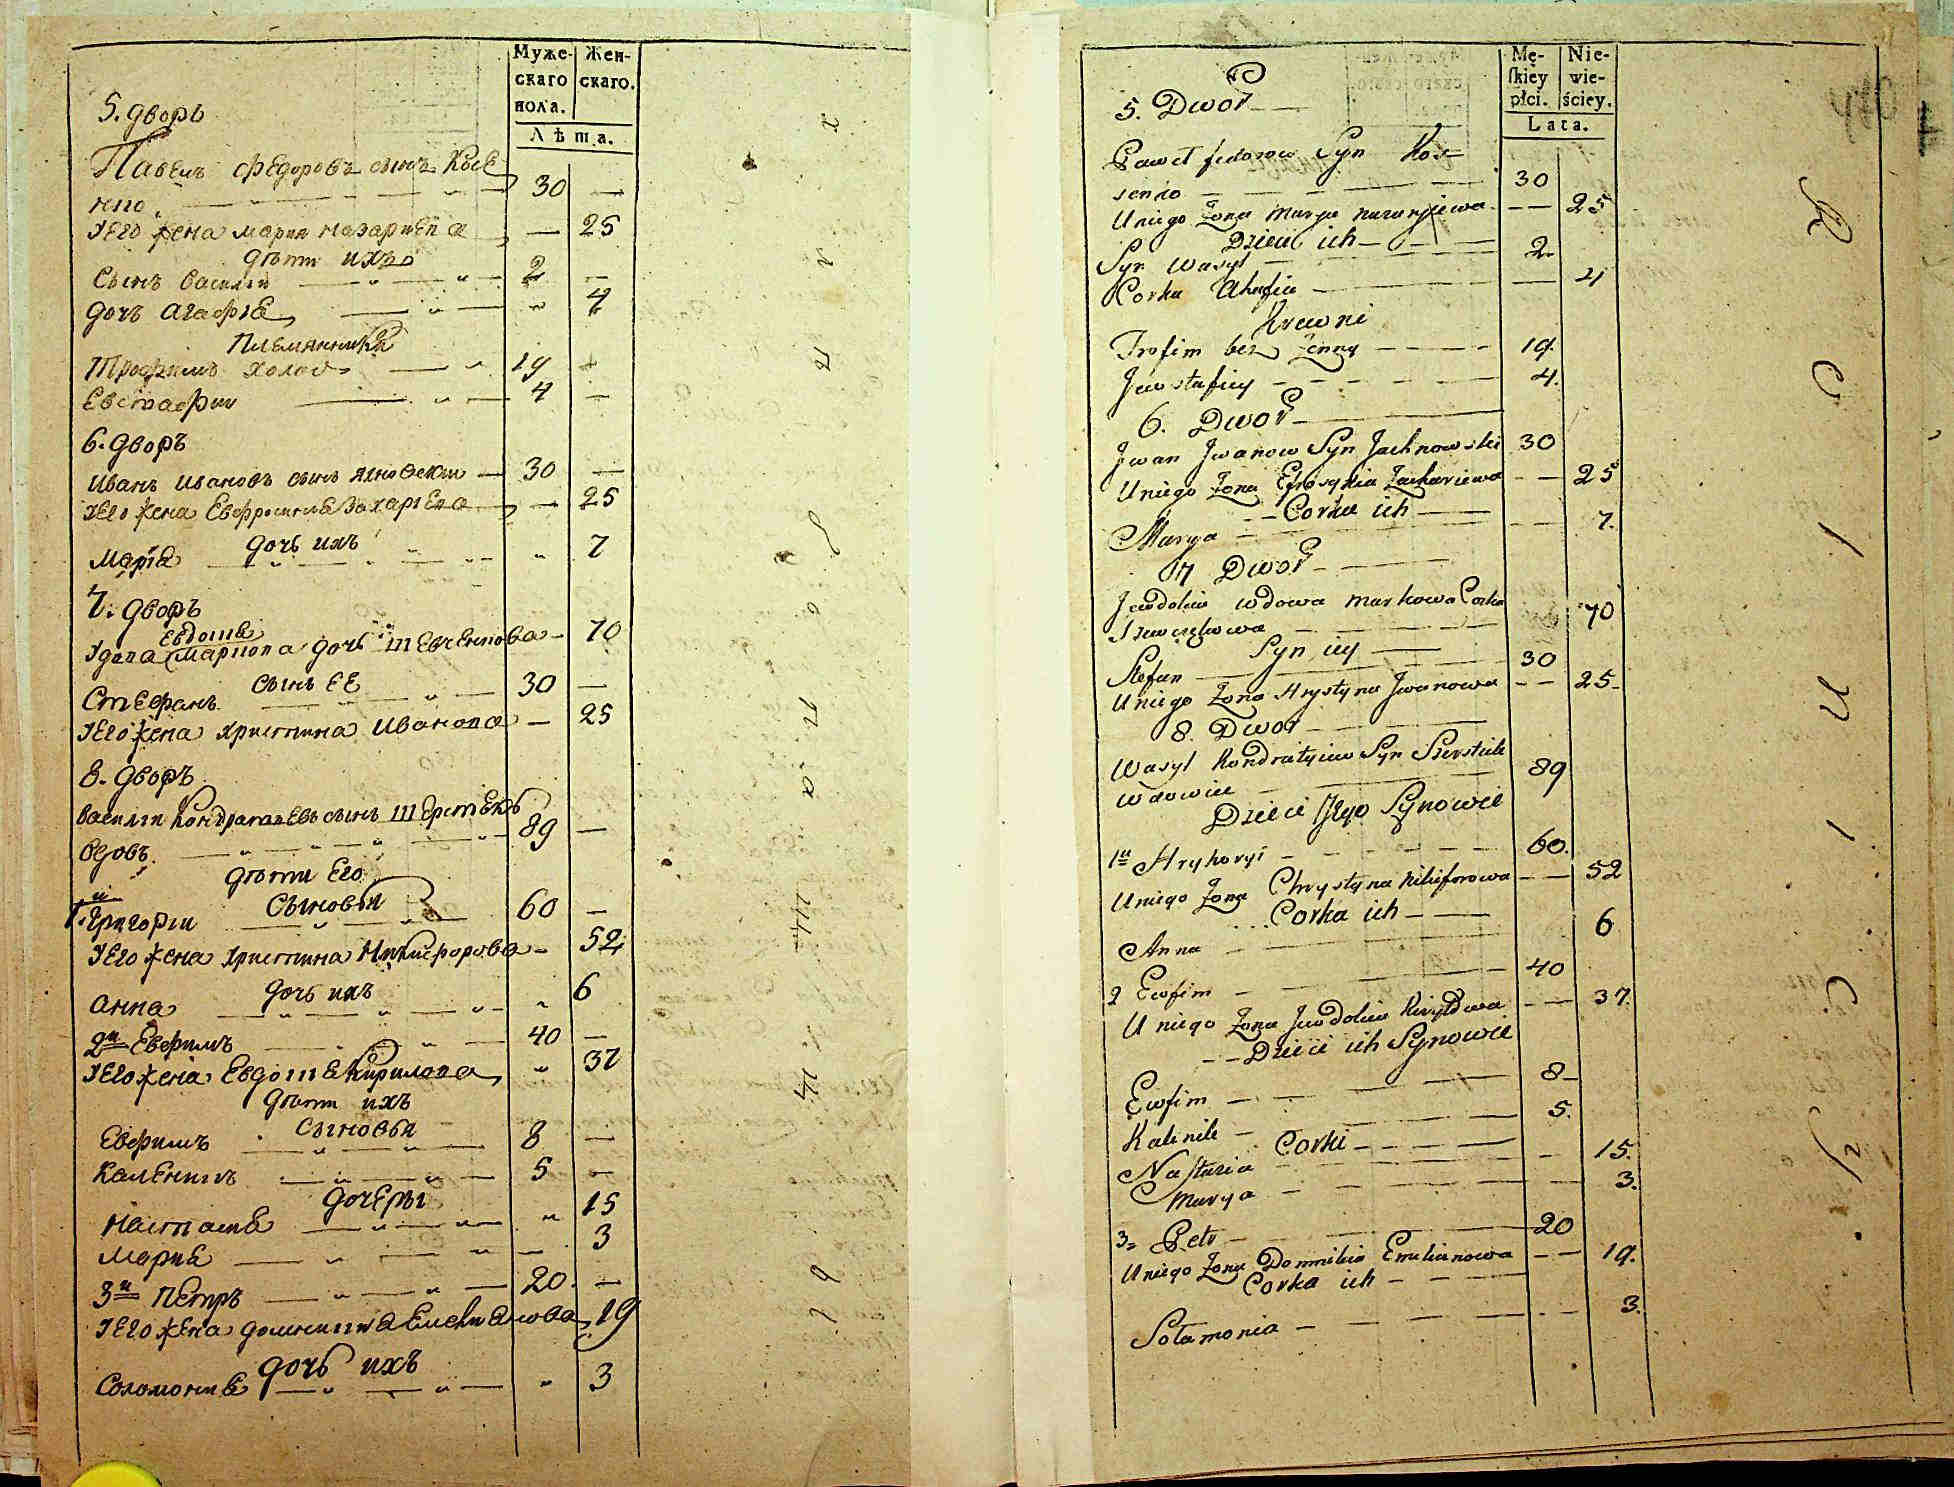 Муже-
скаго
пола.
Жен-
скаго.
Лѣта.
5. дворъ
Павелъ Федоровъ сынъ Косе
нко 30 —
Его жена Мария Назариева — 25
дѣти ихъ
Сынъ Василий 2 —
дочъ Агафия 4
Племянники
Трофимъ холос 19
Евстафии 4 —
6. дворъ
Иванъ Ивановъ сынъ Яхновский — 30 —
Его жена Евфросиния Захариева — 25
дочь ихъ
Мария 7
7. дворъ
Евдокия
Вдова Маркова дочь Шевченкова — 70
сынъ ее
Стефанъ 30 —
Его жена Христина Иванова — 25
8. дворъ
Василии Кондратиевъ сынъ Шерстюкъ
вдовъ 89 —
дѣти его
Сыновья
1й Григории 60 —
Его жена Христина Никифорова — 52
дочь ихъ
Анна 6
2й Евфимъ 40 —
Его жена Евдокия Кирилова 37
дѣти ихъ
Сыновья
Евфимъ 8 —
Каленикъ 5 —
дочеры
Настасия 15
Мария 3
3й Петръ 20 —
Его жена Домникия Емелианова 19
дочь ихъ
Соломония 3
Mę-
skiey
płci.
Nie-
wie-
ściey.
Lata.
5. Dwor
Paweł fedorow Syn Kos
senko 30
U niego Zona Marya Nazaryiewa — 25
Dzieci ich
Syn Wasyl 2
Corka Ahafia 4
Krewni
Trofim bez Zenny 19.
Jewstafiey 4.
6. Dwor
Jwan Jwanow Syn Jachnowski 30
U niego Zona Efrosynia Zachariewa — 25
Corka ich
Marya 7.
7 Dwor
Jewdokia wdowa Markowa Corka
Szewczenkowa 70
Syn iey
Stefan 30
U niego Zona Hrystyna Jwanowa — 25
8. Dwor
Wasyl Kondratyiew Syn Szerstiuk
Wdowiec 89
Dzieci Jego Synowie
1u Hryhoryi 60.
U niego Zona Chrystyna Nikiforowa — 52
Corka ich
Anna 6
2 Ewfim 40
U niego Zona Jewdokia Kiryłowa — 37.
Dzieci ich Synowie
Ewfim 8
Kalenik 5.
Corki
Nastazia 15.
Marya 3.
3 Petr 20
U niego Zona Domnikia Emilianowa — 19.
Corka ich
Sołamonia 3.